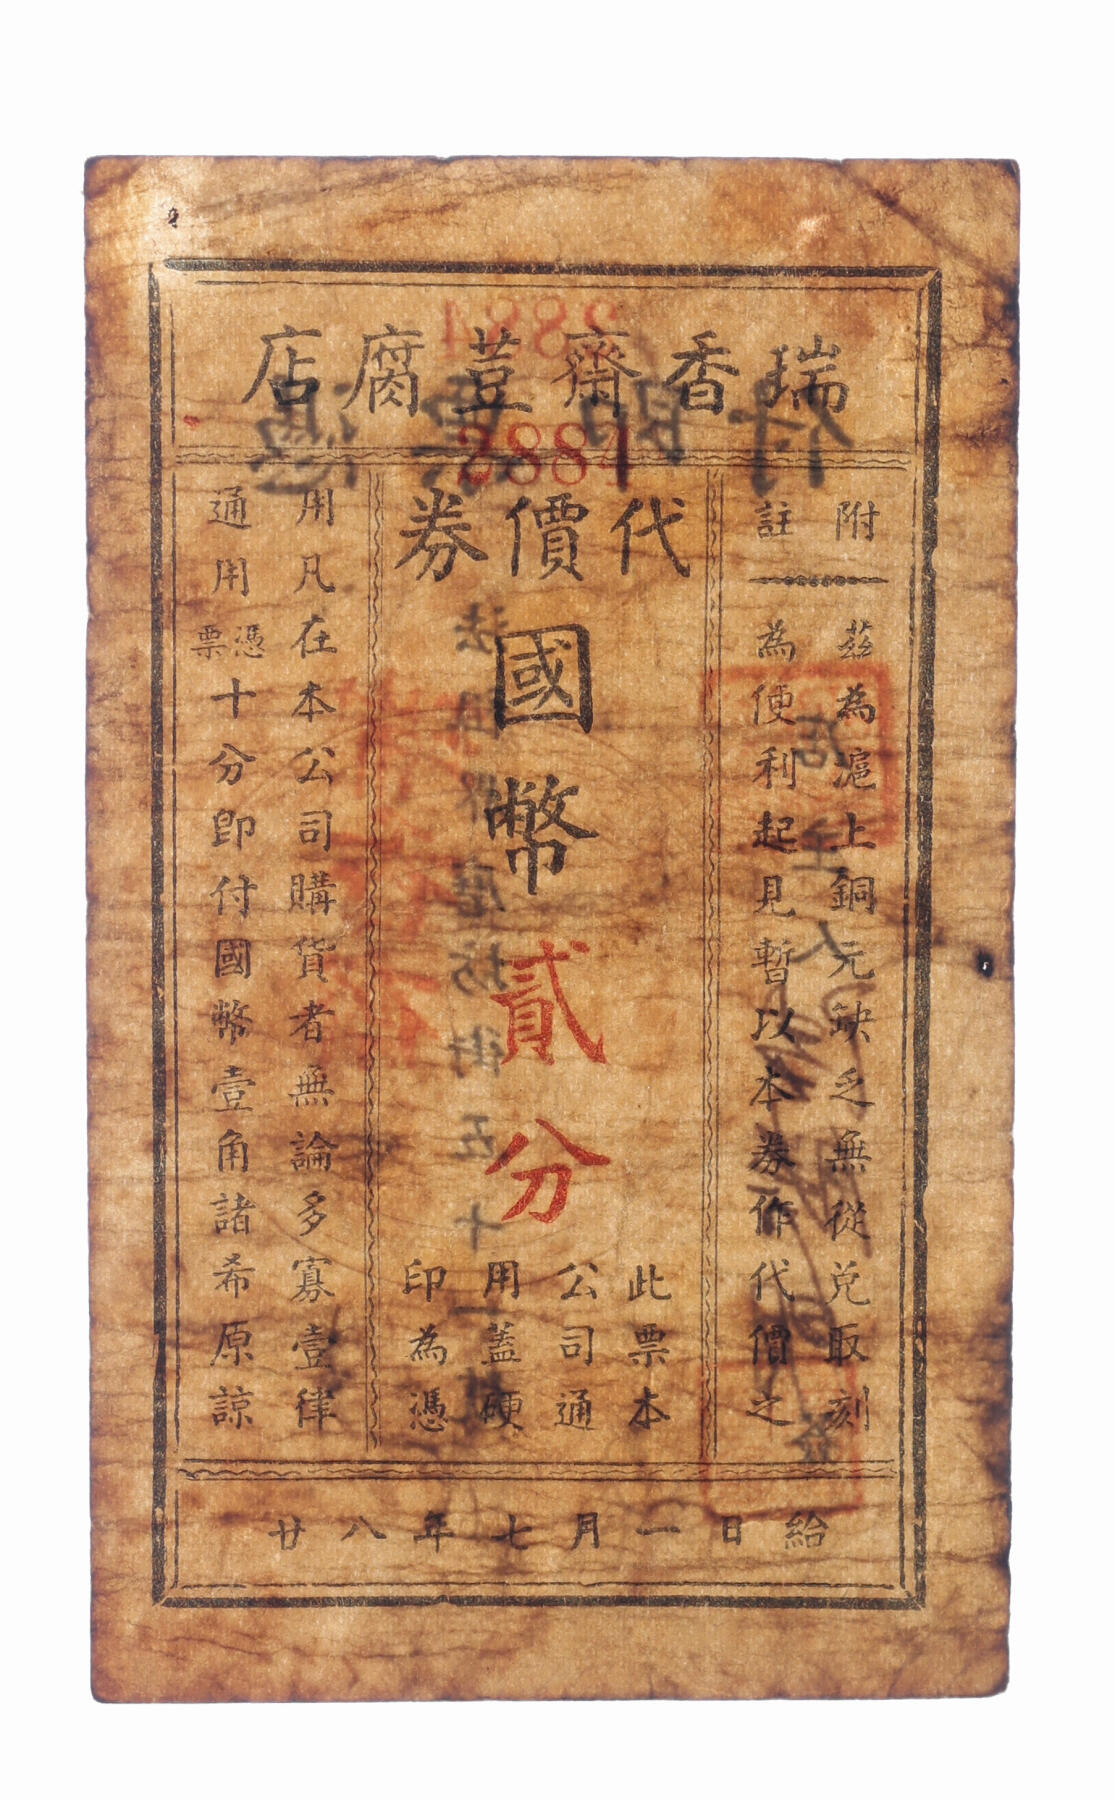 瑞香齋荳腐店
2884
代價券
附註
茲為滬上銅元缺乏無從兌取刻
為便利起見暫以本券作代價之
國幣貳分
此票本
公司通
用蓋硬
印為憑
用凡在本公司購貨者無論多寡壹律
通用憑票十分即付國幣壹角諸希原諒
廿八年七月一日給